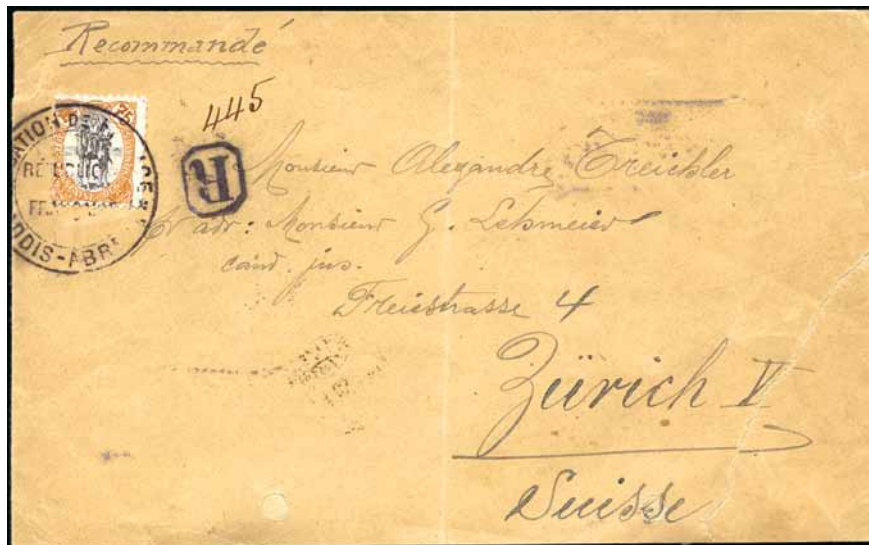 Recommandé
75
445
R
Monsieur Alexandre Treichler
adr: Monsieur G.
cand. jus.
Freiestrasse 4
Zürich V
Suisse
ADDIS-AB